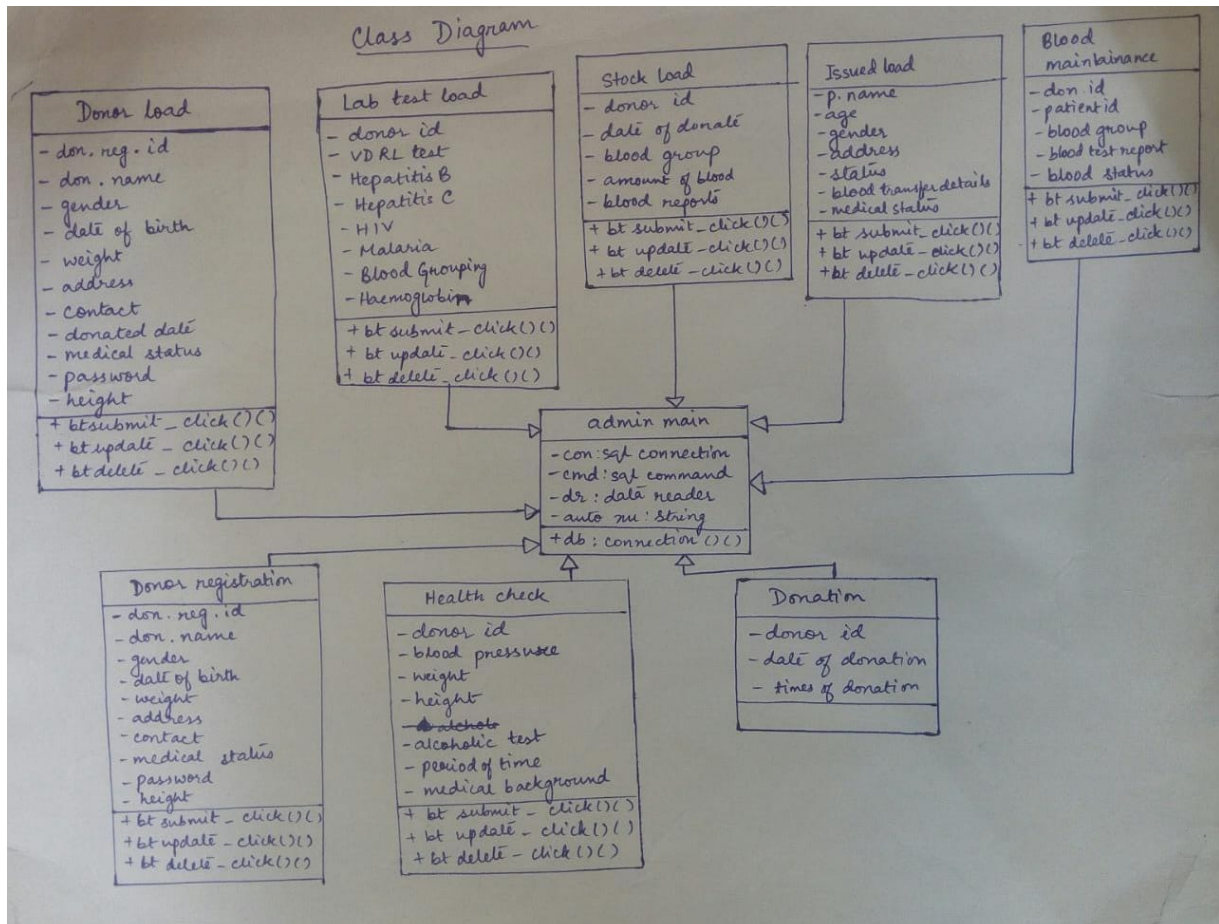 Class Diagram
Donor load
- don. reg. id
- don. name
- gender
- date of birth
- weight
- address
- contact
- donated date
- medical status
- password
- height
+ bt submit_click()()
+ bt update_click()()
+ bt delete_click()()
Lab test load
- donor id
- VDRL test
- Hepatitis B
- Hepatitis C
- HIV
- Malaria
- Blood Grouping
- Haemoglobin
+ bt submit_click()()
+ bt update_click()()
+ bt delete_click()()
Stock load
- donor id
- date of donate
- blood group
- amount of blood
- blood reports
+ bt submit_click()()
+ bt update_click()()
+ bt delete_click()()
Issued load
- p. name
- age
- gender
- address
- status
- blood transfer details
- medical status
+ bt submit_click()()
+ bt update_click()()
+ bt delete_click()()
Blood
maintainance
- don. id
- patient id
- blood group
- blood test report
- blood status
+ bt submit_click()()
+ bt update_click()()
+ bt delete_click()()
admin main
- con: sql connection
- cmd: sql command
- dr: data reader
- auto nu: string
+ db: connection()()
Donor registration
- don. reg. id
- don. name
- gender
- date of birth
- weight
- address
- contact
- medical status
- password
- height
+ bt submit_click()()
+ bt update_click()()
+ bt delete_click()()
Health check
- donor id
- blood pressure
- weight
- height
- alcoholic test
- period of time
- medical background
+ bt submit_click()()
+ bt update_click()()
+ bt delete_click()()
Donation
- donor id
- date of donation
- times of donation